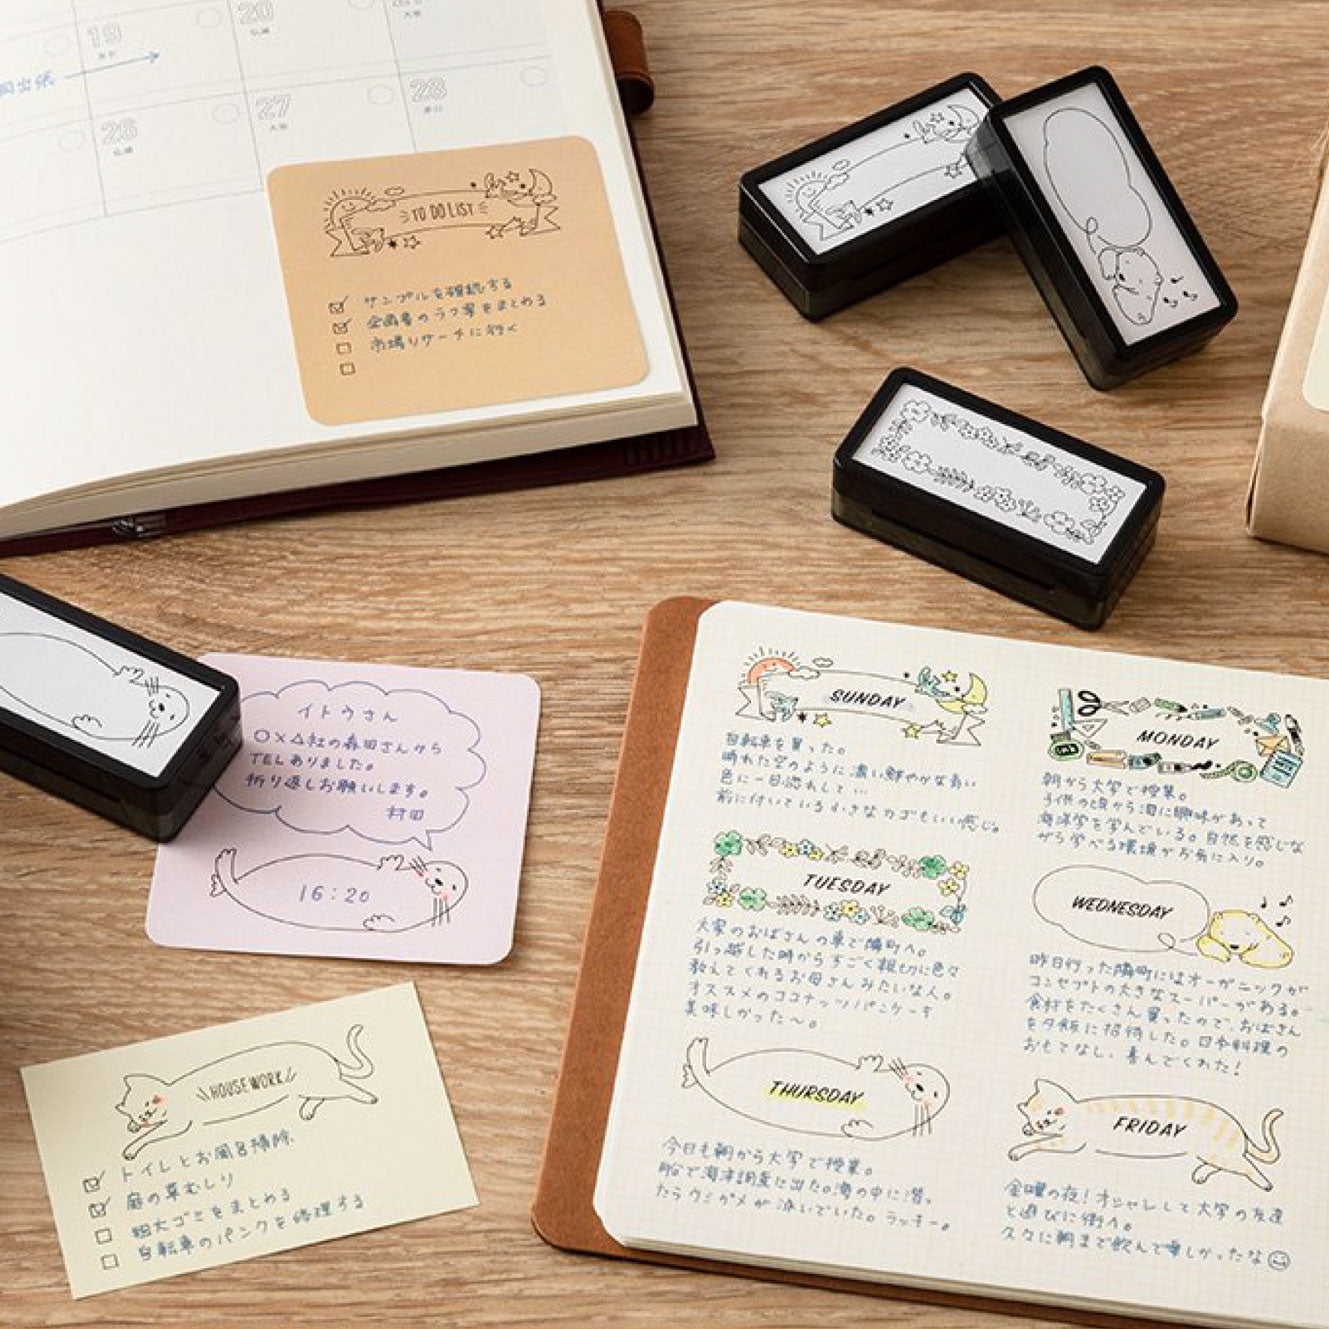 19
20
26
仏滅
27
大安
28
赤口
出張
TO DO LIST
サンプルを確認する
企画書のラフ案をまとめる
市場リサーチに行く
イトウさん
○×△社の森田さんから
TELありました。
折り返しお願いします。
村田
16:20
HOUSEWORK
トイレとお風呂掃除
庭の草むしり
粗大ゴミをまとめる
自転車のパンクを修理する
SUNDAY
自転車を買った。
晴れた空のように濃い鮮やかな青い
色に一目惚れして…
前に付いている小さなカゴもいい感じ。
MONDAY
朝から大学で授業。
子供の頃から海に興味があって
海洋学を学んでいる。自然を感じな
がら学べる環境がお気に入り。
TUESDAY
大家のおばさんの車で隣町へ。
引っ越した時からすごく親切に色々
教えてくれるお母さんみたいな人。
オススメのココナッツパンケーキ
美味しかった〜。
WEDNESDAY
昨日行った隣町にはオーガニックが
コンセプトの大きなスーパーがある。
食材をたくさん買ったので、おばさん
を夕飯に招待した。日本料理の
おもてなし、喜んでくれた!
THURSDAY
今日も朝から大学で授業。
船で海洋調査に出た。海の中に潜っ
たらウミガメが泳いでいた。ラッキー。
FRIDAY
金曜の夜!オシャレして大学の友達
と遊びに街へ。
久々に朝まで飲んで楽しかったな